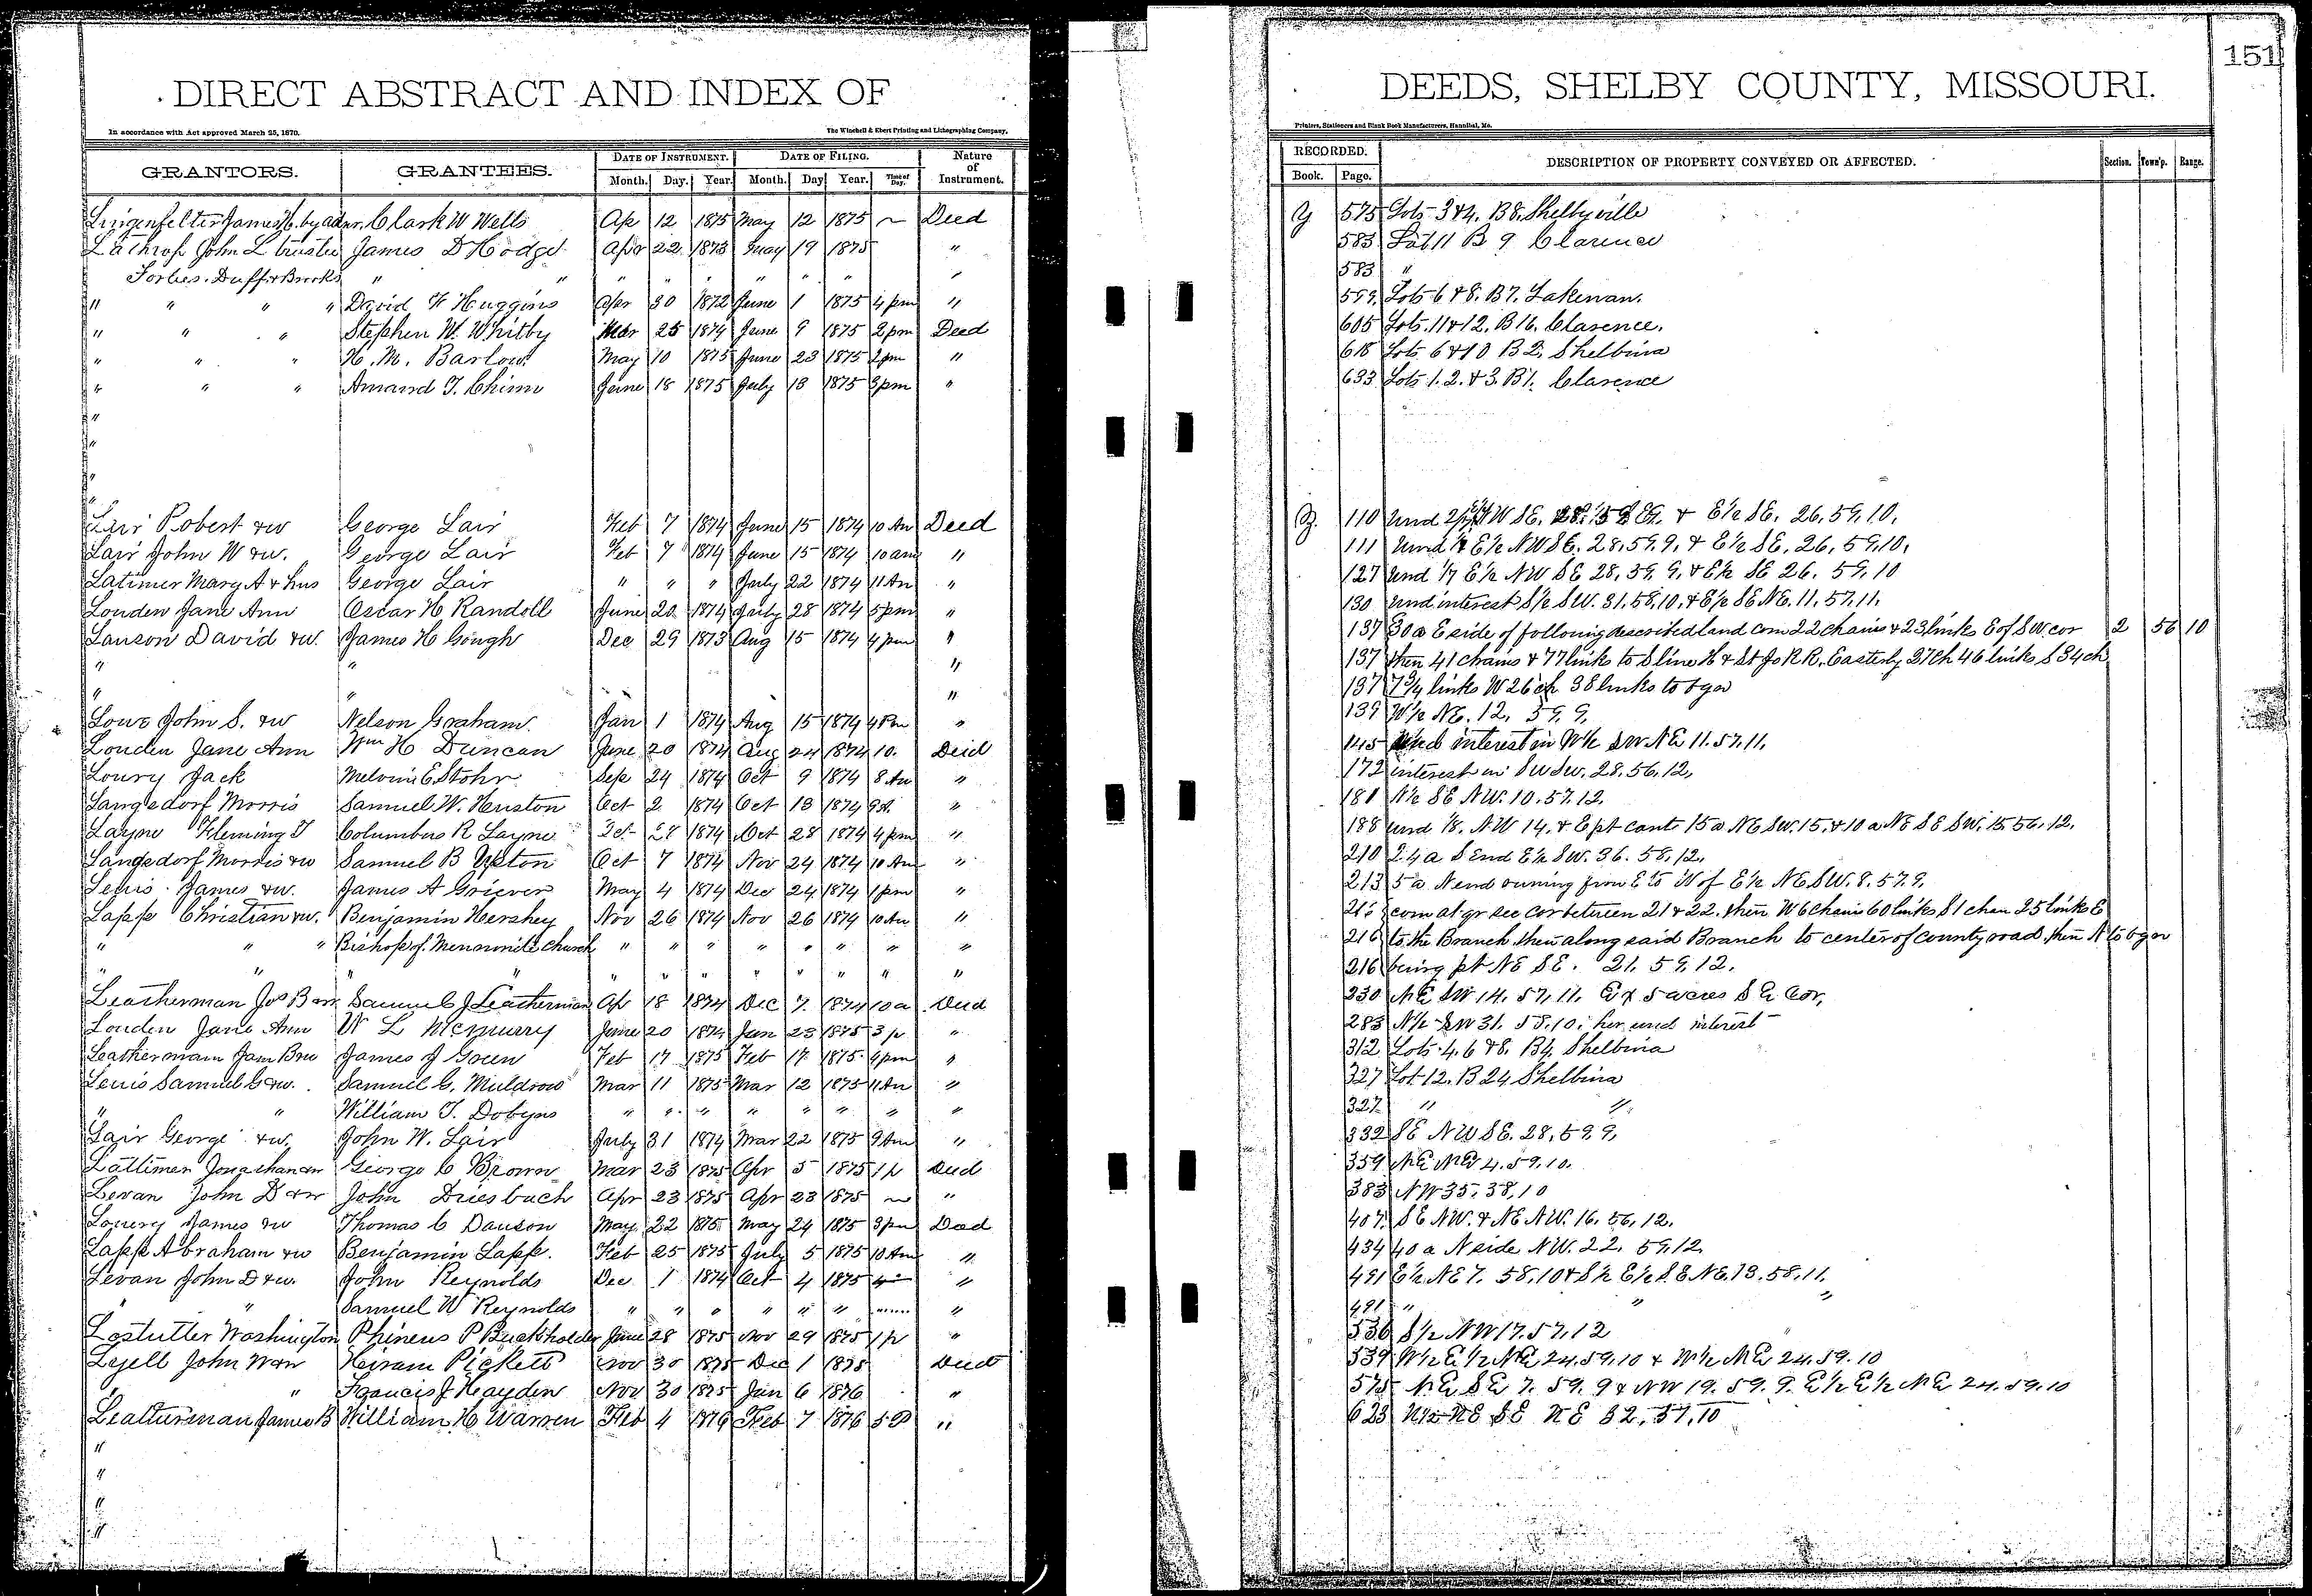 151
DIRECT ABSTRACT AND INDEX OF
In accordance with Act approved March 25, 1870.
The Winchell & Ebert Printing and Lithographing Company,
GRANTORS. GRANTEES. DATE OF INSTRUMENT. DATE OF FILING. Nature of Instrument.
Month. Day. Year. Month. Day Year. Time of Day.
Lingenfelter James H. by admr. Clark W Wells Ap 12 1875 May 12 1875 ~ Deed
Lathrop John L trustee James D Hodge Apr 22 1873 May 19 1875 "
Forbes, Duff & Brooks " " " " " " " " "
" " " " David H Huggins Apr 30 1872 June 1 1875 4 pm "
" " " Stephen W. Whitby Mar 25 1874 June 9 1875 2 pm Deed
" " " H. M. Barlow May 10 1875 June 23 1875 2 pm "
" " " Amand T. Chinn June 18 1875 July 13 1875 3 pm "
"
"
"
"
Lair Robert & w George Lair Feb 7 1874 June 15 1874 10 Am Deed
Lair John W & w. George Lair Feb 7 1874 June 15 1874 10 am "
Latimer Mary A & hus George Lair " " " July 22 1874 11 Am "
Louden Jane Ann Oscar H Randoll June 20 1874 July 28 1874 5 pm "
Lanson David & w. James H Gough Dec 29 1873 Aug 15 1874 4 pm "
" " "
" " "
Lowe John S. & w Nelson Graham. Jan 1 1874 Aug 15 1874 4 Pm "
Louden Jane Ann Wm H Duncan June 20 1874 Aug 24 1874 10. Deed
Loury Jack Melvin E Stohr Sep 24 1874 Oct 9 1874 8 Am "
Langsdorf Morris Samuel W. Huston Oct 2 1874 Oct 13 1874 9 A. "
Layne Fleming T Columbus R Layne Oct 28 1874 Oct 28 1874 4 pm "
Langsdorf Morris & w Samuel B Upton Oct 7 1874 Nov 24 1874 10 Am "
Lewis James & w. James A Griever May 4 1874 Dec 24 1874 1 pm "
Lapp Christian & w. Benjamin Hershey Nov 26 1874 Nov 26 1874 10 Am "
" " " Bishop of Mennonite Church " " " " " " " "
" " " " " " " " " " "
Leatherman Jas B & w Samuel J Leatherman Ap 18 1874 Dec 7. 1874 10 a Deed
Louden Jane Ann W L McMurry June 20 1874 Jan 23 1875 3 p "
Leatherman Jas B & w James J Goen Feb 17 1875 Feb 17. 1875 4 pm "
Lewis Samuel G & w. Samuel C. Muldrow Mar 11 1875 Mar 12 1875 11 Am "
" " William T. Dobyns " " " " " " " "
Lair George & w. John W. Lair July 31 1874 Mar 22 1875 9 Am "
Lattimer Jonathan & w George C Brown Mar 23 1875 Apr 5 1875 1 p Deed
Levan John D & w John Driesbach Apr 23 1875 Apr 23 1875 ~ "
Lowery James & w Thomas C Dawson May 22 1875 May 24 1875 3 pm Deed
Lapp Abraham & w Benjamin Lapp. Feb 25 1875 July 5 1875 10 Am "
Levan John D & w. John Reynolds Dec 1 1874 Oct 4 1875 4 "
" " Samuel W Reynolds " " " " " " ...... "
Lostutter Washington Phineus P Buckholder June 28 1875 Nov 29 1875 1 p "
Lyell John W & w Hiram Pickett Nov 30 1875 Dec 1 1875 Deed
" " Francis J Hayden Nov 30 1875 Jan 6 1876 "
Leatherman James B William H Warren Feb 4 1876 Feb 7 1876 5 P "
"
"
"
"
DEEDS, SHELBY COUNTY, MISSOURI.
Printers, Stationers and Blank Book Manufacturers, Hannibal, Mo.
RECORDED. DESCRIPTION OF PROPERTY CONVEYED OR AFFECTED. Section. Town'p. Range.
Book. Page.
Y 575 Lots 3 & 4. B 8. Shelbyville
583 Lot 11 B 9 Clarence
583 "
599 Lots 6 & 8. B 7. Lakenan.
605 Lots. 11 & 12. B 16. Clarence.
618 Lots 6 & 10 B 2. Shelbina
633 Lots 1. 2. & 3. B 1. Clarence
Z. 110 Und 2/7 W SE. & E 1/2 SE. 26, 59, 10,
111 Und 1/7 E 1/2 NW SE. 28, 59, 9, & E 1/2 SE. 26, 59, 10,
127 Und 1/7 E 1/2 NW SE 28, 59, 9, & E 1/2 SE 26. 59, 10
130 Und interest S 1/2 SW. 31. 58, 10, & E 1/2 SE NE. 11. 57, 11.
137 30 a E side of following described land com 22 chains & 23 links E of SW. cor 2 56 10
137 then 41 chains & 77 links to S line H & St Jo R R, Easterly 27 ch 46 links S 34 ch
137 73/4 links W 26 ch 38 links to bgn
139 W 1/2 NE. 12, 59, 9,
145 und interest in W 1/2 SW NE 11. 57, 11,
172 interest in SW SW. 28, 56, 12,
181 N 1/2 SE NW. 10. 57, 12.
188 und 1/8. NW 14. & E pt cont 15 a NE SW. 15. & 10 a NE SE SW. 15 56. 12.
210 24 a S End E 1/2 SW. 36. 58, 12,
213 5 a N end running from E to W of E 1/2 NE SW. 8. 57. 9.
216 com at qr sec cor between 21 & 22. then W 6 chains 60 links S 1 chan 25 links E
216 to the Branch, then along said Branch to center of county road, then N to bgn
216 being pt NE SE. 21. 59, 12.
230 NE SW 14. 57, 11. Ex 5 acres S E Cor,
283 N 1/2 SW 31. 58, 10; her und interest
312 Lots 4, 6 & 8. B 4, Shelbina
327 Lot 12. B 24 Shelbina
327 " "
332 SE NW SE. 28, 59, 9,
359 NE NE 4. 59. 10.
383 NW 35, 38, 10
407 SE NW. & NE NW. 16, 56, 12.
434 40 a N side NW. 22. 59, 12
491 E 1/2 NE 7. 58, 10 & S 1/2 E 1/2 SE NE. 13. 58, 11.
491 " " "
536 S 1/2 NW 17. 57, 12
539 W 1/2 E 1/2 NE 24. 59, 10 & W 1/2 NE 24. 59. 10
575 NE SE 7. 59. 9 & NW 19. 59. 9. E 1/2 E 1/2 NE 24. 59. 10
623 N 1/2 NE SE NE 32, 57, 10